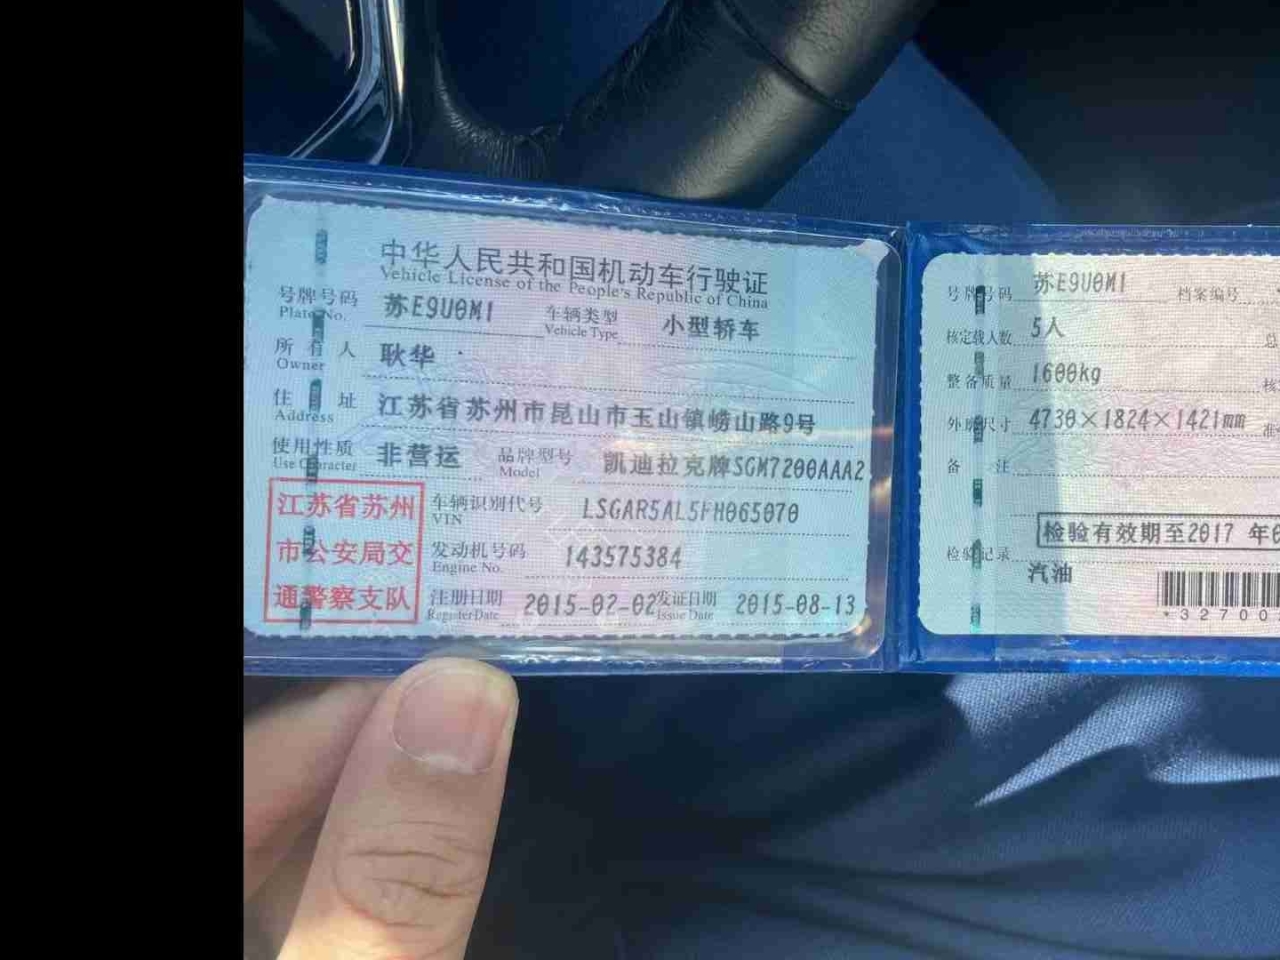 中华人民共和国机动车行驶证
Vehicle License of the People's Republic of China
号牌号码 苏E9U0M1 车辆类型 小型轿车
Plate No. Vehicle Type
所有人 耿华
Owner
住址 江苏省苏州市昆山市玉山镇崂山路9号
Address
使用性质 非营运 品牌型号 凯迪拉克牌SGM7200AAA2
Use Character Model
江苏省苏州
市公安局交
通警察支队
车辆识别代号 LSGAR5AL5FH065070
VIN
发动机号码 143575384
Engine No.
注册日期 2015-02-02 发证日期 2015-08-13
Register Date Issue Date
号牌号码 苏E9U0M1 档案编号
核定载人数 5人 总
整备质量 1600kg 核
外廓尺寸 4730×1824×1421mm 准
备注
检验有效期至2017 年
检验记录
汽油
*32700